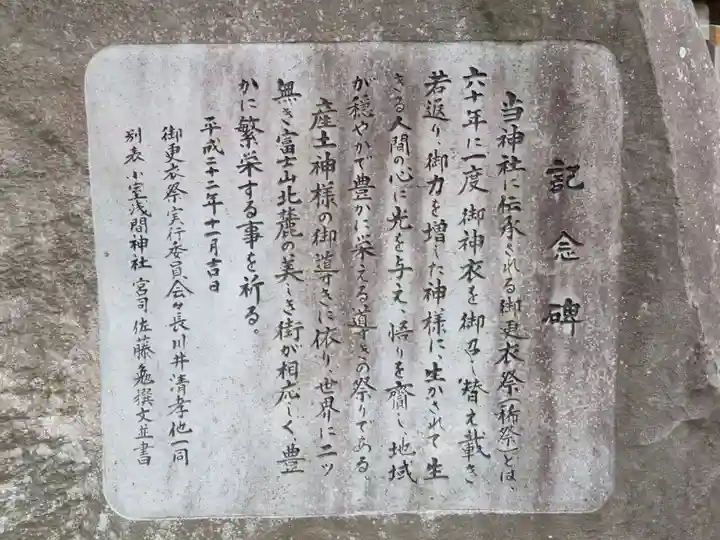 記念碑
当神社に伝承される御更衣祭(稀祭)とは、
六十年に一度御神衣を御召し替え戴き
若返り、御力を増した神様に、生かされて生
きる人間の心に光を与え、悟りを齎し、地域
が穏やかで豊かに栄える導きの祭りである。
産土神様の御導きに依り、世界に二ッ
無き富士山北麓の美しき街が相応しく、豊
かに繁栄する事を祈る。
平成二十二年十一月吉日
御更衣祭実行委員会々長川井清孝他一同
別表小室浅間神社宮司佐藤亀撰文並書